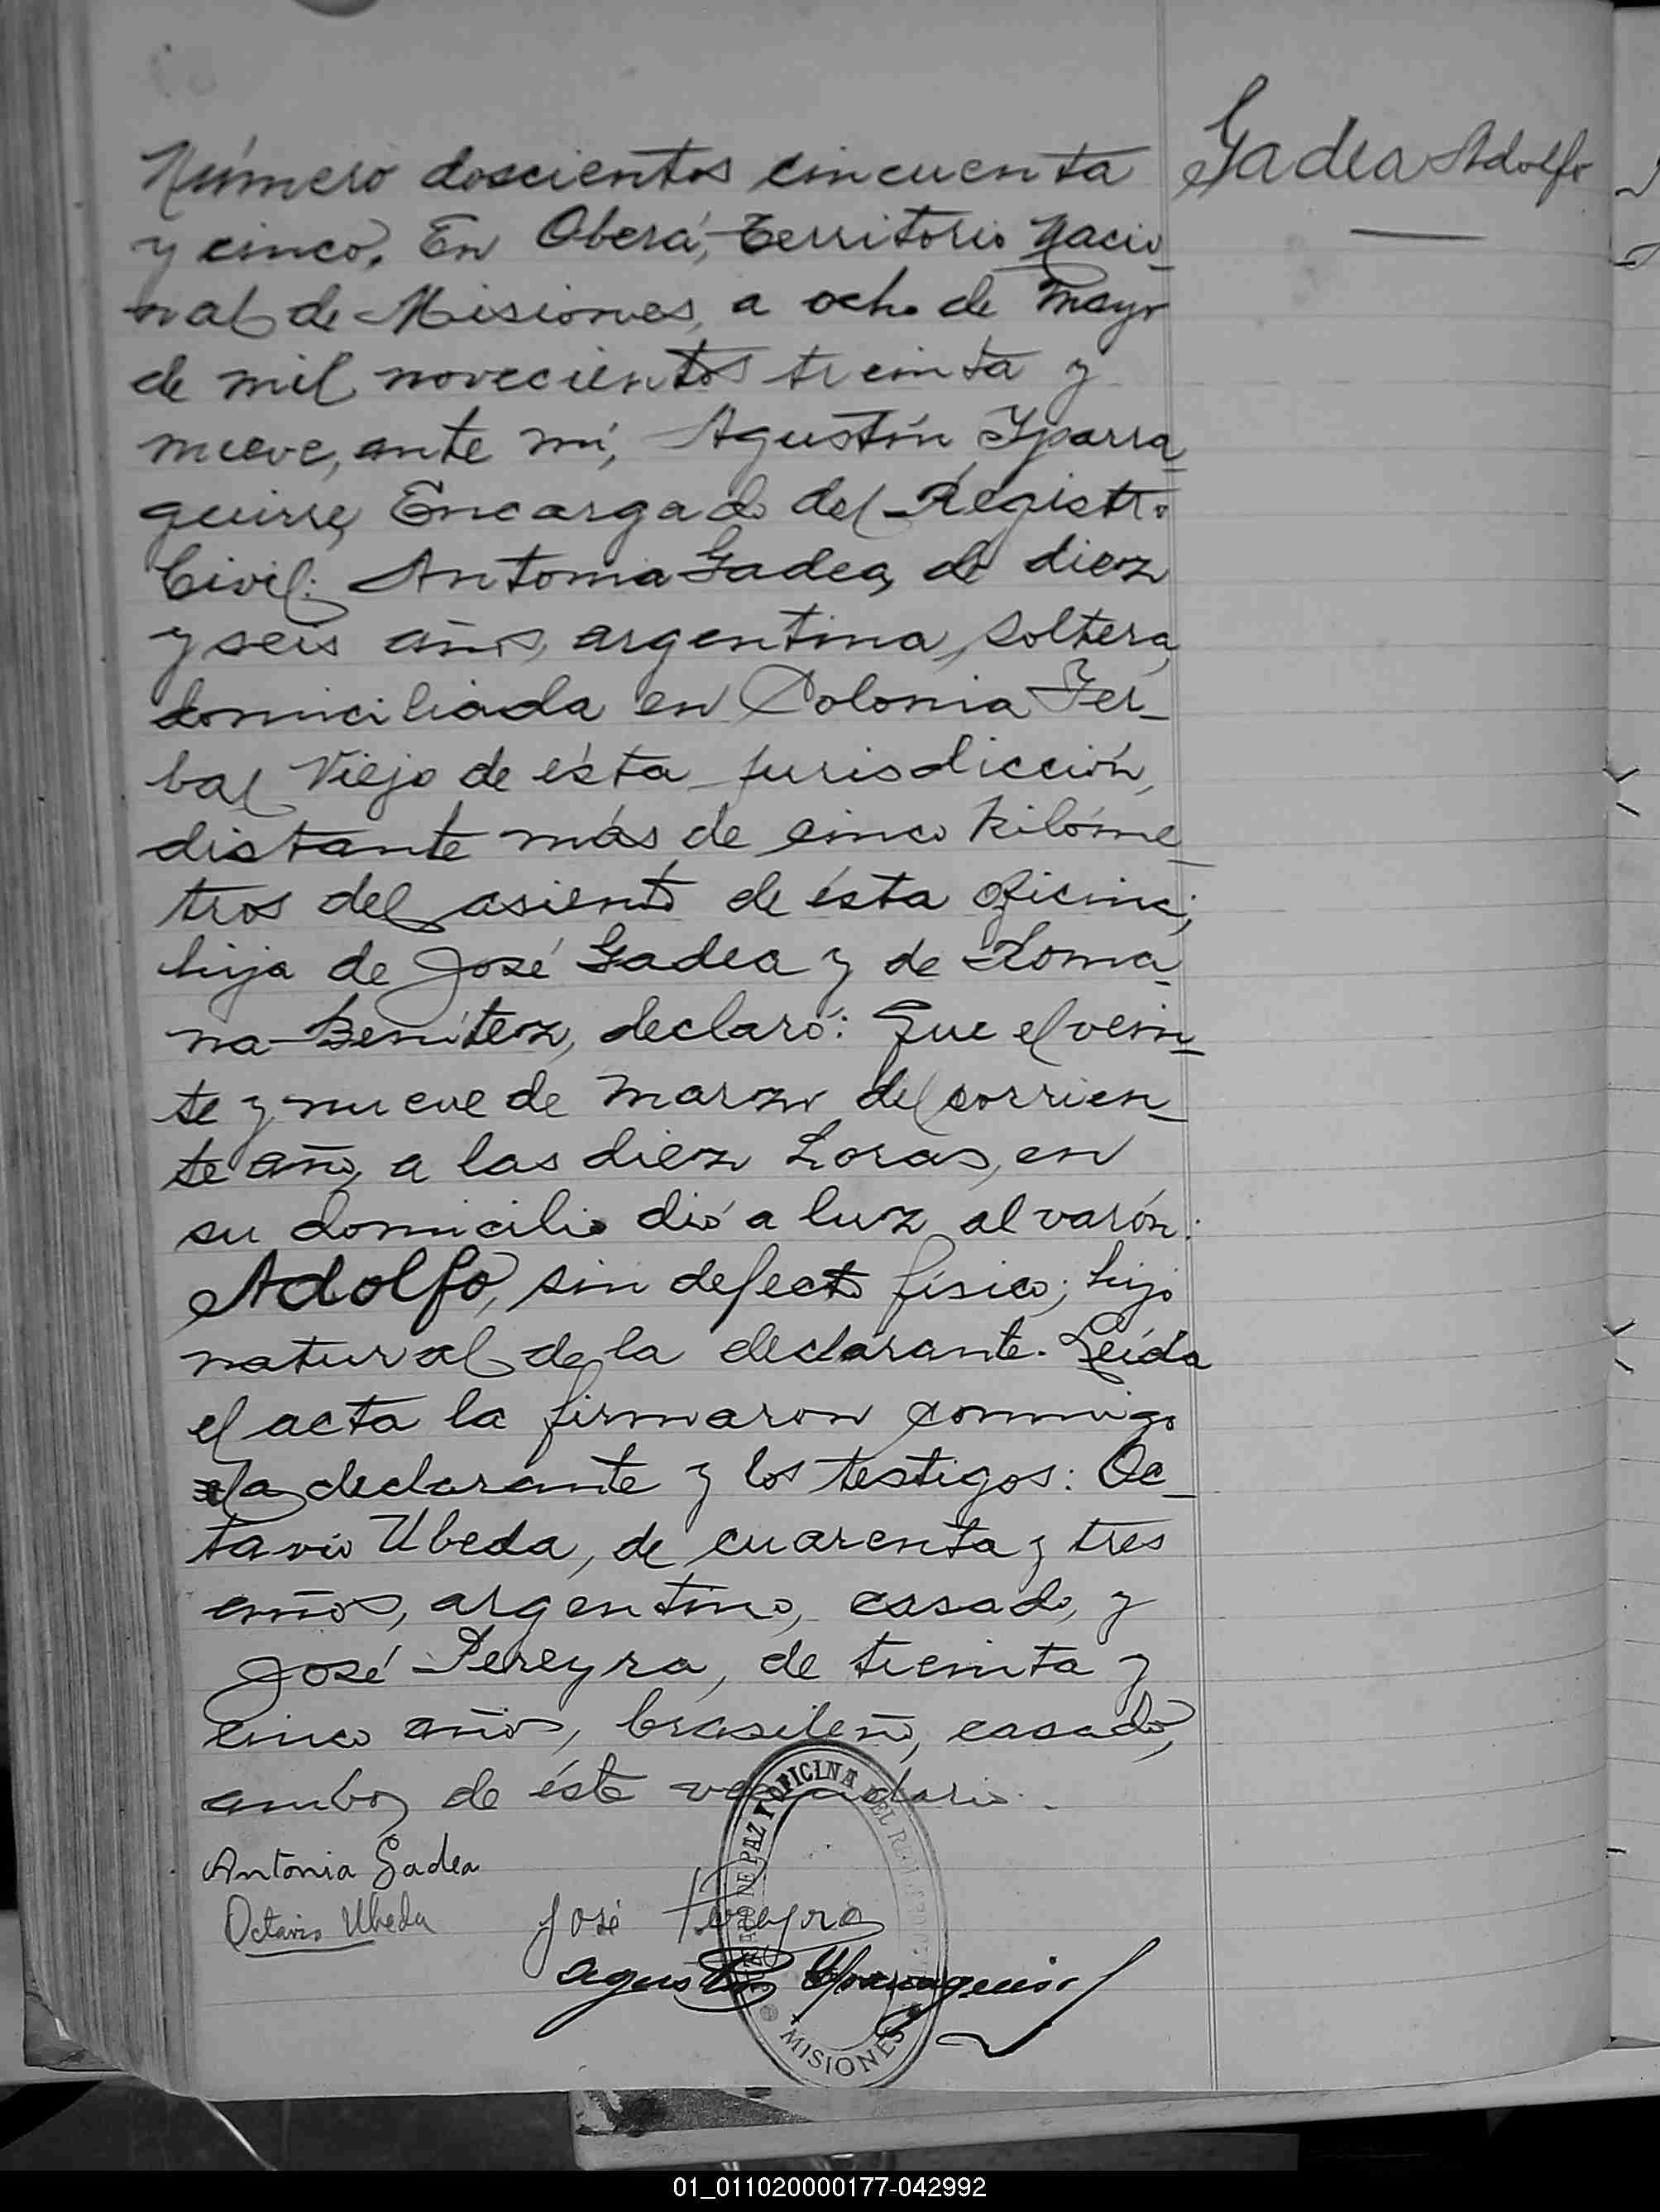 Número doscientos cincuenta
Gadea Adolfo
y cinco. En Oberá, Territorio Nacio-
nal de Misiones, a ocho de Mayo
de mil novecientos treinta y
nueve, ante mí, Agustín Yparra-
guirre, Encargado del Registro
Civil: Antonia Gadea, de diez
y seis años, argentina, soltera,
domiciliada en Colonia Yer-
bal Viejo de ésta jurisdicción,
distante más de cinco kilóme-
tros del asiento de ésta oficina;
hija de José Gadea y de Roma-
na Benítez, declaró: Que el vein-
te y nueve de marzo del corrien-
te año, a las diez horas, en
su domicilio dió a luz al varón:
Adolfo, sin defecto físico; hijo
natural de la declarante. Leída
el acta la firmaron conmigo
la declarante y los testigos: Oc-
tavio Ubeda, de cuarenta y tres
años, argentino, casado, y
José Pereyra, de treinta y
cinco años, brasileño, casado,
ambos de éste vecindario.
Antonia Gadea
Octavio Ubeda José Pereyra
Agustín Yparraguirre
DE PAZ Y OFICINA DEL
MISIONES
01_011020000177-042992